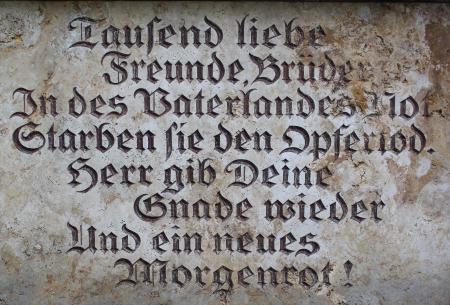 Tausend liebe
Freunde, Brüder
In des Vaterlandes Not.
Starben sie den Opfertod.
Herr gib Deine
Gnade wieder
Und ein neues
Morgenrot!